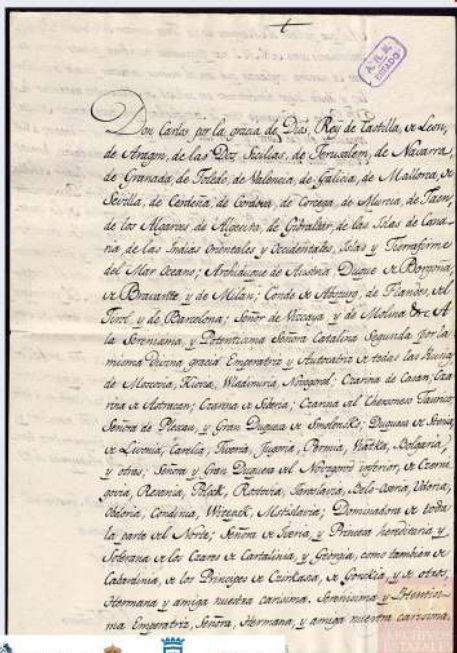 A.H.N.
ESTADO
Don Carlos por la gracia de Dios, Rey de Castilla, de Leon,
de Aragon, de las Dos Sicilias, de Jerusalem, de Navarra,
de Granada, de Toledo, de Valencia, de Galicia, de Mallorca, de
Sevilla, de Cerdeña, de Cordova, de Corcega, de Murcia, de Jaen,
de los Algarves, de Algecira, de Gibraltar, de las Islas de Cana-
ria, de las Indias Orientales y Occidentales, Islas y Tierrafirme
del Mar Oceano; Archiduque de Austria, Duque de Borgoña,
de Bravante, y de Milan; Conde de Abspurg, de Flandes, del
Tirol, y de Barcelona; Señor de Vizcaya, y de Molina &c. A
la Serenisima y Potentisima Señora Catalina Segunda por la
misma Divina gracia Emperatriz y Autocratriz de todas las Rusias
de Moscovia, Kiovia, Wladimiria, Novogorod; Czarina de Casan; Cza
rina de Astracan; Czarina de Siberia; Czarina del Chersoneso Taurico;
Señora de Pleskau, y Gran Duquesa de Smolensko; Duquesa de Estonia,
de Livonia, Carelia, Tweria, Jugoria, Permia, Viatka, Bolgaria,
y otras; Señora y Gran Duquesa del Novogorod inferior, de Czerni
govia, Resania, Polozk, Rostovia, Jaroslavia, Belo-Oseria, Udoria,
Obdoria, Condinia, Witepsk, Mstislavia; Dominadora de toda
la parte del Norte; Señora de Iveria, y Princesa hereditaria y
Soberana de los Czares de Cartalinia, y Georgia, como tambien de
Cabardinia, de los Principes de Czirkasia, de Gorskia, y de otros;
Hermana y amiga nuestra carisima. Serenisima y Potentisi-
ma Emperatriz, Señora, Hermana, y amiga nuestra carisima.
ARCHIVOS
ESTATALES